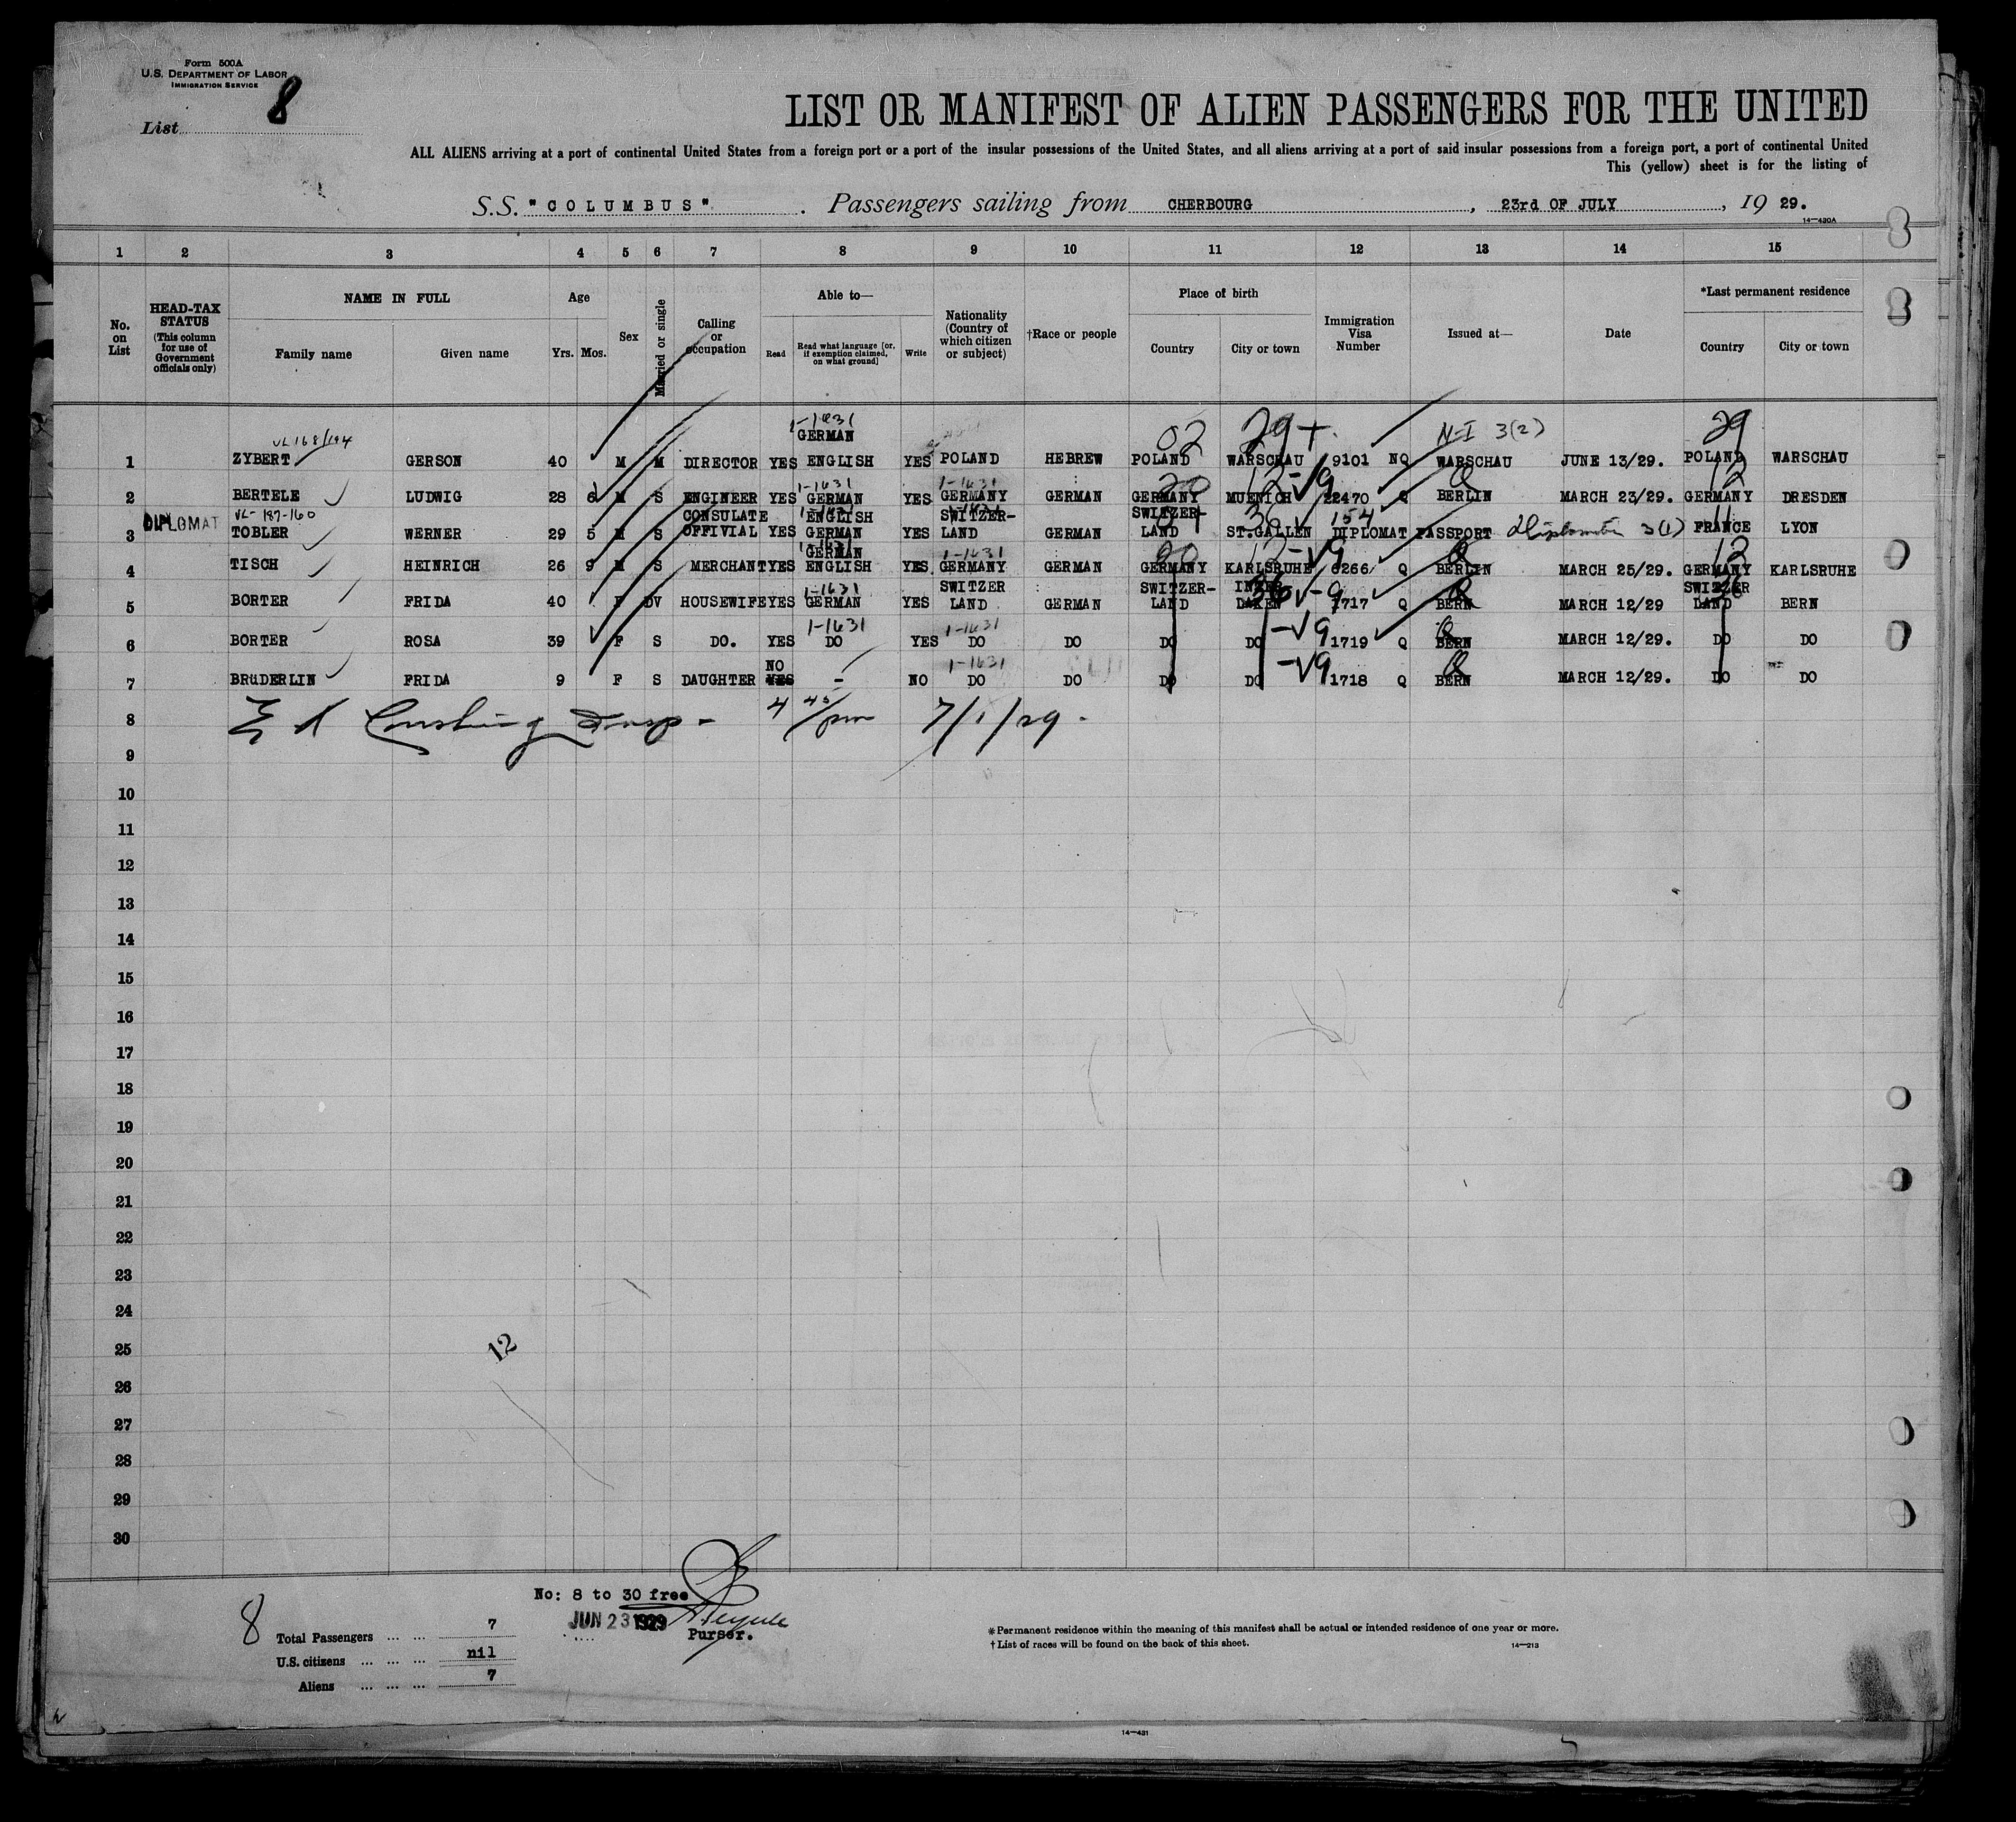 Form 500A
U.S. DEPARTMENT OF LABOR
IMMIGRATION SERVICE
List 8
LIST OR MANIFEST OF ALIEN PASSENGERS FOR THE UNITED
ALL ALIENS arriving at a port of continental United States from a foreign port or a port of the insular possessions of the United States, and all aliens arriving at a port of said insular possessions from a foreign port, a port of continental United
This (yellow) sheet is for the listing of
S.S. "COLUMBUS". Passengers sailing from CHERBOURG, 23rd OF JULY, 19 29.
14—430A
1 2 3 4 5 6 7 8 9 10 11 12 13 14 15
No. on List
HEAD-TAX STATUS (This column for use of Government officials only)
NAME IN FULL Family name Given name
Age Yrs. Mos.
Sex
Married or single
Calling or occupation
Able to— Read Read what language [or, if exemption claimed, on what ground] Write
Nationality (Country of which citizen or subject)
†Race or people
Place of birth Country City or town
Immigration Visa Number
Issued at—
Date
*Last permanent residence Country City or town
VL 168/194 1-1631 GERMAN 02 29+ N-I 3(2) 29
1 ZYBERT GERSON 40 M M DIRECTOR YES ENGLISH YES POLAND HEBREW POLAND WARSCHAU 9101 NQ WARSCHAU JUNE 13/29. POLAND WARSCHAU
1-1631 1-1631 20 12 -V9 12
2 BERTELE LUDWIG 28 6 M S ENGINEER YES GERMAN YES GERMANY GERMAN GERMANY MUENICH 22470 Q BERLIN MARCH 23/29. GERMANY DRESDEN
DIPLOMAT VL-187-160 CONSULATE 1-1631 ENGLISH 1-1631 SWITZER- SWITZER- 36 154 11
3 TOBLER WERNER 29 5 M S OFFIVIAL YES GERMAN YES LAND GERMAN LAND ST.GALLEN DIPLOMAT PASSPORT 3(1) FRANCE LYON
1-1631 GERMAN 1-1631 20 12 -V9 12
4 TISCH HEINRICH 26 9 M S MERCHANT YES ENGLISH YES GERMANY GERMAN GERMANY KARLSRUHE 6266 Q BERLIN MARCH 25/29. GERMANY KARLSRUHE
1-1631 SWITZER SWITZER- INTER 36 V-9 SWITZER 36
5 BORTER FRIDA 40 F DV HOUSEWIFE YES GERMAN YES LAND GERMAN LAND DAKEN 1717 Q BERN MARCH 12/29 LAND BERN
1-1631 1-1631 -V9
6 BORTER ROSA 39 F S DO. YES DO YES DO DO DO DO 1719 Q BERN MARCH 12/29. DO DO
NO 1-1631 -V9
7 BRüDERLIN FRIDA 9 F S DAUGHTER YES - NO DO DO DO DO 1718 Q BERN MARCH 12/29. DO DO
8 Cushing Insp- 4 45/pm 7/1/29.
9
10
11
12
13
14
15
16
17
18
19
20
21
22
23
24
25
12
26
27
28
29
30
No: 8 to 30 free
JUN 23 1929
Purser.
8
Total Passengers ... ... 7
U.S. citizens ... ... ... nil
Aliens ... ... ... 7
*Permanent residence within the meaning of this manifest shall be actual or intended residence of one year or more.
†List of races will be found on the back of this sheet.
14—213
14—431